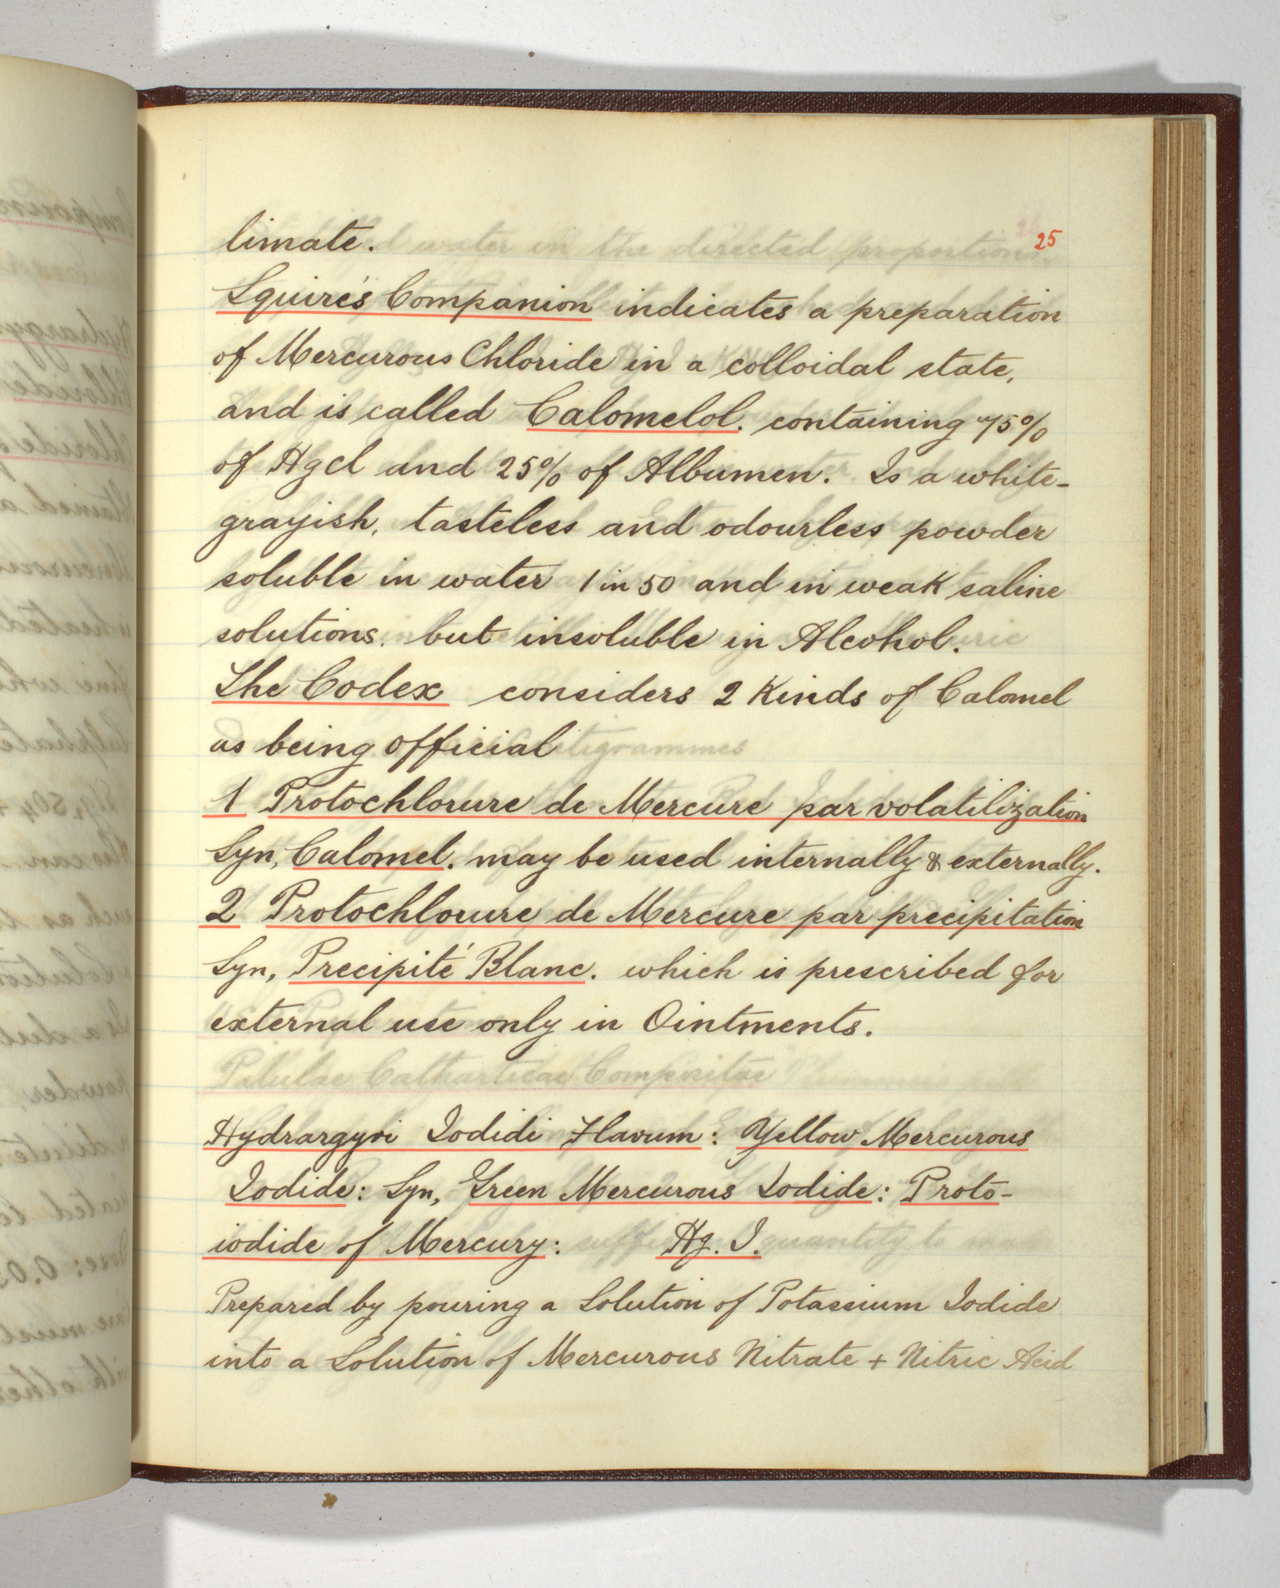 25
limate.
Squire's Companion indicates a preparation
of Mercurous Chloride in a colloidal state,
and is called Calomelol. containing 75%
of Hgcl and 25% of Albumen. Is a white-
grayish, tasteless and odourless powder
soluble in water 1 in 50 and in weak saline
solutions, but insoluble in Alcohol.
The Codex considers 2 Kinds of Calomel
as being official
1 Protochlorure de Mercure par volatilization
Syn, Calomel. may be used internally & externally.
2 Protochlorure de Mercure par precipitation
Syn, Precipité Blanc. which is prescribed for
external use only in Ointments.
Hydrargyri Iodidi Flavum: Yellow Mercurous
Iodide: Syn, Green Mercurous Iodide: Proto-
iodide of Mercury: Hg. I.
Prepared by pouring a Solution of Potassium Iodide
into a Solution of Mercurous Nitrate + Nitric Acid